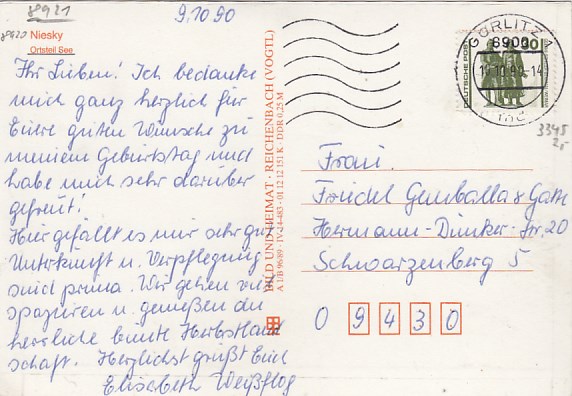 8921
9.10.90
8920 Niesky
Ortsteil See
Ihr Lieben! Ich bedanke
mich ganz herzlich für
Eure guten Wünsche zu
meinem Geburtstag und
habe mich sehr darüber
gefreut.
Hier gefällt es mir sehr gut
Unterkunft u. Verpflegung
sind prima. Wir gehen viel
spazieren u. genießen die
herrliche bunte Herbstland
schaft. Herzlichst grüßt Euch
Elisabeth Weißflog
BILD UND HEIMAT · REICHENBACH (VOGTL)
GÖRLITZ 1
8900
DEUTSCHE POST
3345
2,-
Frau
Friedel Gemballa & Gatte
Hermann-Dunker-Str. 20
Schwarzenberg 5
0 9430